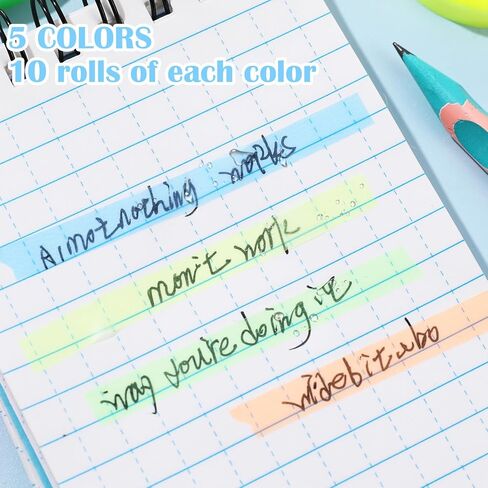 5 COLORS
10 rolls of each color
Almotnothing works
mon't work
way you're doing it